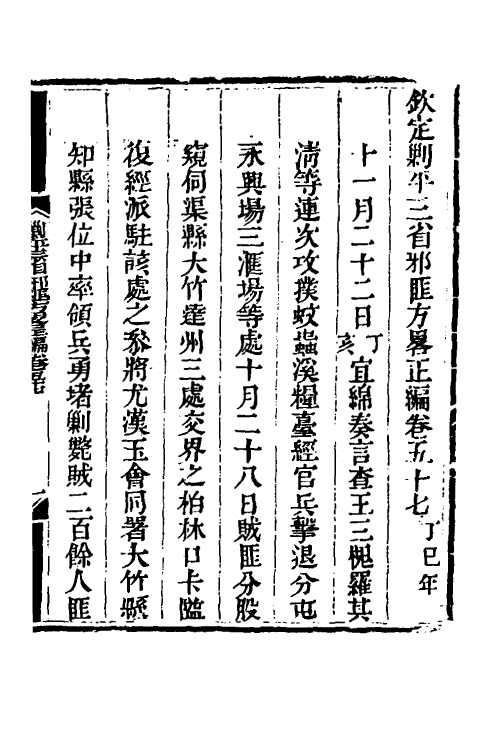 欽定剿平三省邪匪方畧正編卷五十七丁巳年
十一月二十二日丁亥宜綿奏言查王三槐羅其
清等連次攻撲蚊蟲溪糧臺經官兵擊退分屯
永興場三滙場等處十月二十八日賊匪分股
窺伺渠縣大竹達州三處交界之柏林口卡隘
復經派駐該處之叅將尤漢玉會同署大竹縣
知縣張位中率領兵勇堵剿斃賊二百餘人匪